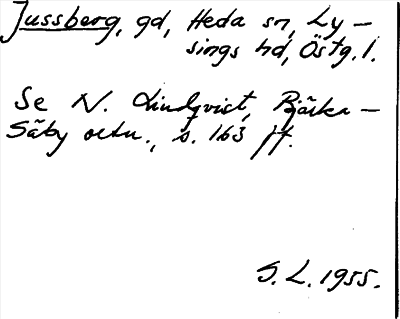 Jussberg, gd, Heda sn, Ly-
sings hd, Östg. l.
Se N. Lindqvist, Bjärka-
Säby ortn., s. 163 ff.
S. L. 1955.